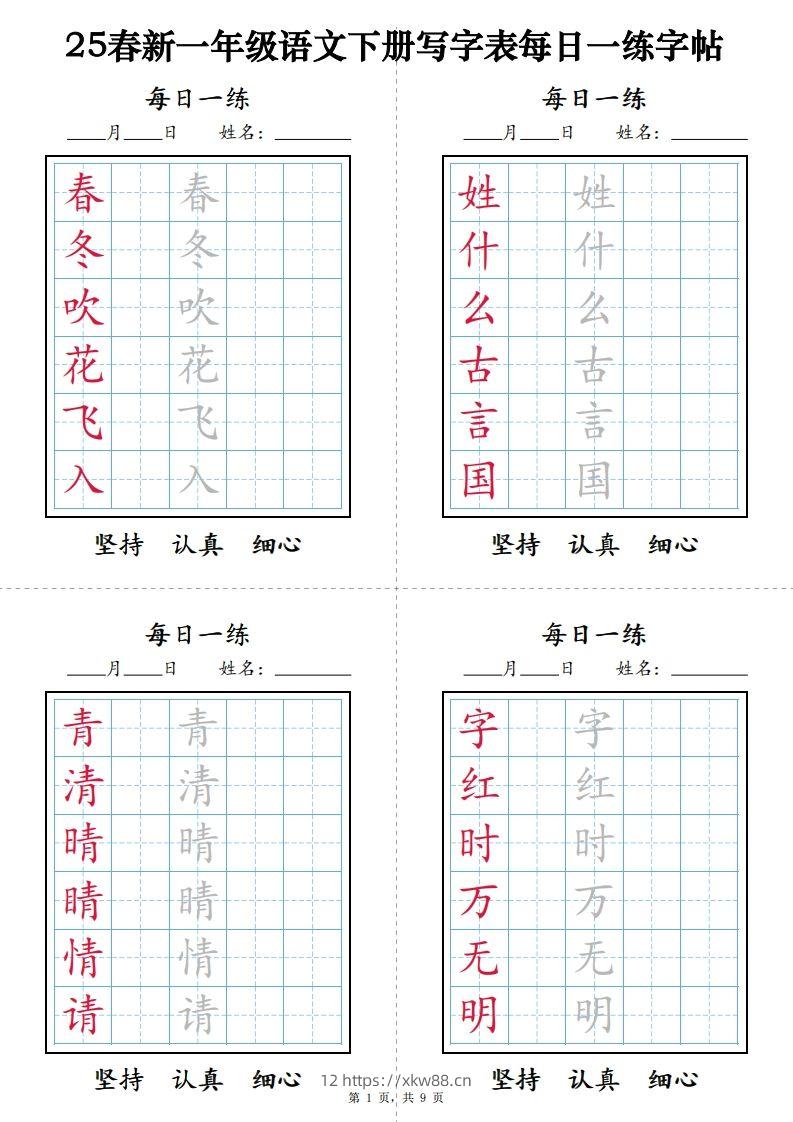 25春新一年级语文下册写字表每日一练字帖
每日一练
____月____日 姓名：________
春 春
冬 冬
吹 吹
花 花
飞 飞
入 入
坚持 认真 细心
每日一练
____月____日 姓名：________
姓 姓
什 什
么 么
古 古
言 言
国 国
坚持 认真 细心
每日一练
____月____日 姓名：________
青 青
清 清
晴 晴
睛 睛
情 情
请 请
坚持 认真 细心
每日一练
____月____日 姓名：________
字 字
红 红
时 时
万 万
无 无
明 明
坚持 认真 细心
12 https://xkw88.cn
第 1 页，共 9 页